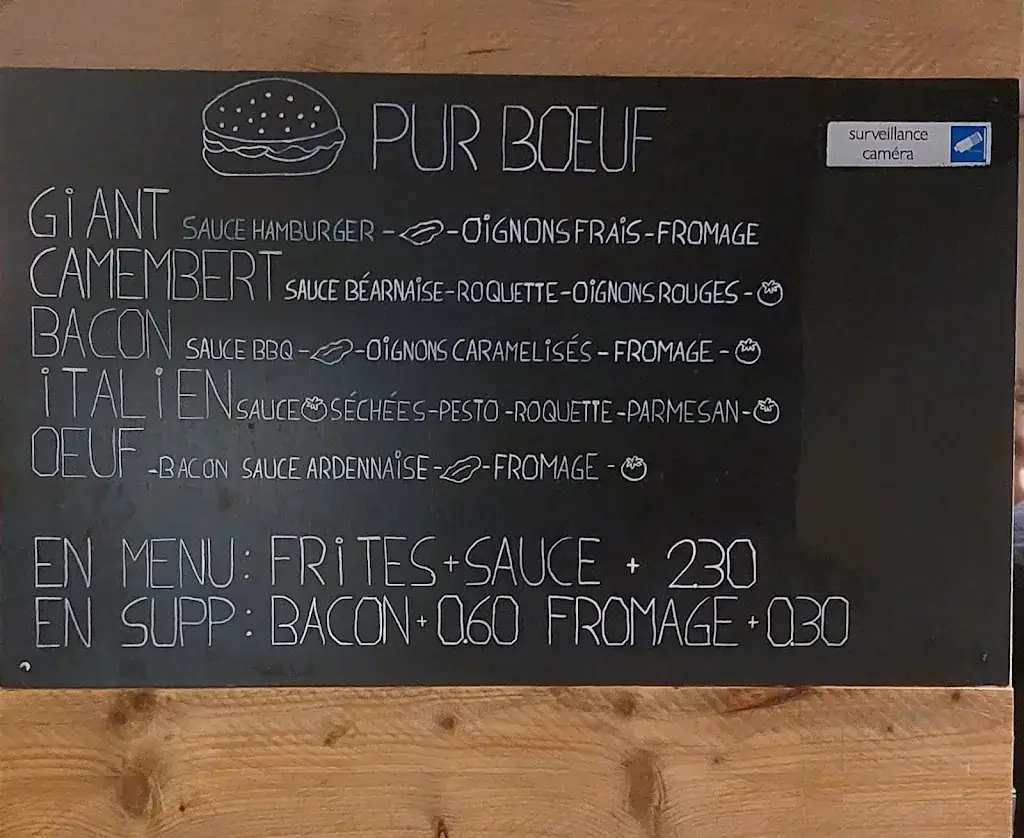 PUR BŒUF
surveillance
caméra
GIANT SAUCE HAMBURGER - - OIGNONS FRAIS - FROMAGE
CAMEMBERT SAUCE BÉARNAISE - ROQUETTE - OIGNONS ROUGES -
BACON SAUCE BBQ - - OIGNONS CARAMELISÉS - FROMAGE -
ITALIEN SAUCE SÉCHÉES - PESTO - ROQUETTE - PARMESAN -
OEUF - BACON SAUCE ARDENNAISE - - FROMAGE -
EN MENU : FRITES + SAUCE + 2.30
EN SUPP : BACON + 0.60 FROMAGE + 0.30